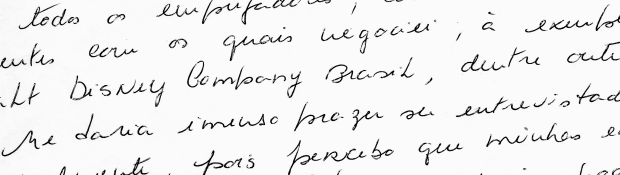 todos os empregadores, c
entes com os quais negociei, à exemplo
alt DISNEY Company BrasiL, dentre outr
Me daria imenso prazer ser entrevistad
mente, pois percebo que minhas e